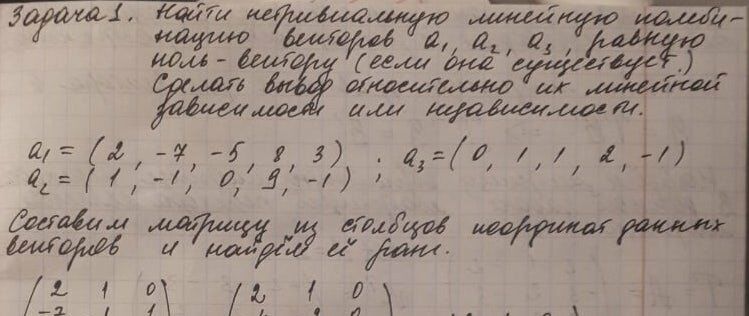 Задача 1. Найти нетривиальную линейную комби-
нацию векторов a1, a2, a3, равную
ноль-вектору (если она существует.)
Сделать вывод относительно их линейной
зависимости или независимости.
a1 = (2, -7, -5, 8, 3) ; a3 = (0, 1, 1, 2, -1)
a2 = (1, -1, 0, 9, -1) ;
Составим матрицу из столбцов координат данных
векторов и найдём её ранг.
2 1 0 2 1 0
-7 -1 1